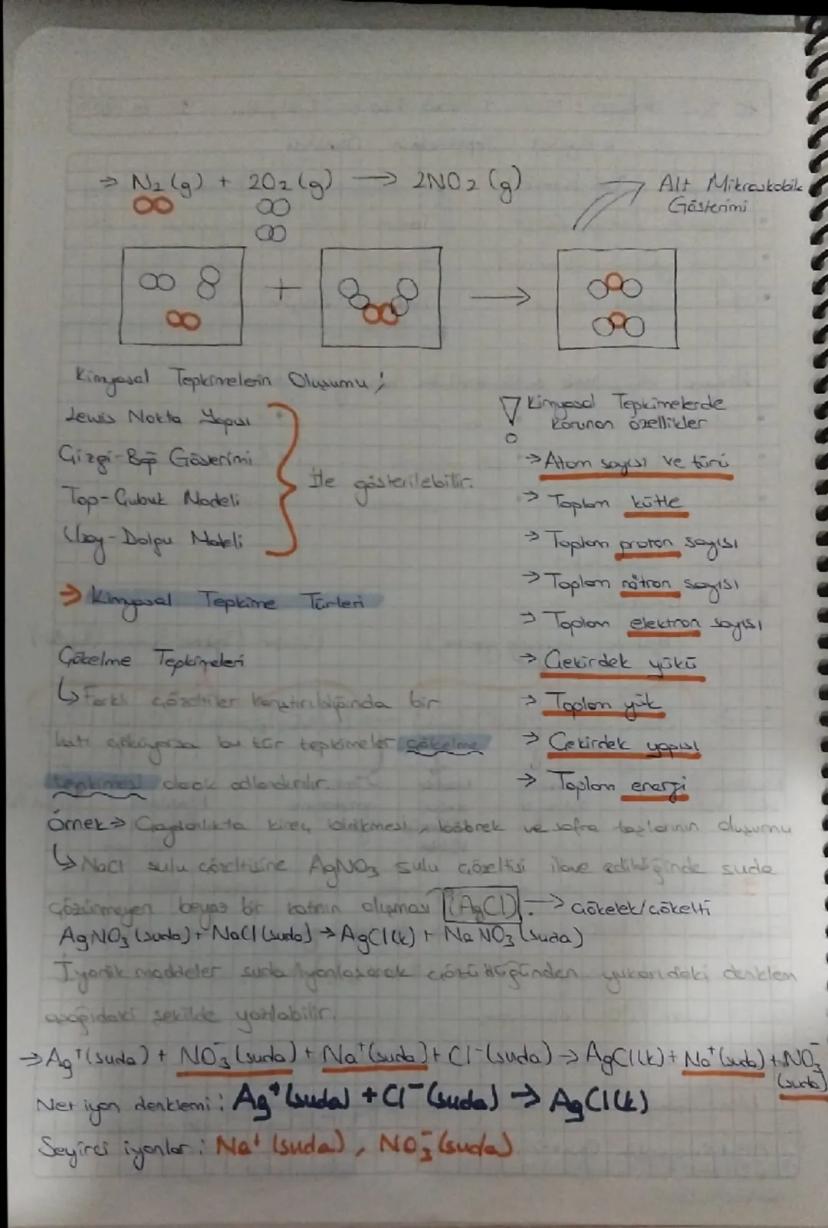 ⇒ N₂(g) + 2O₂(g) → 2NO₂(g)
Alt Mikroskobik
Gösterimi
+ →
Kimyasal Tepkimelerin Oluşumu;
Lewis Nokta Yapısı
Çizgi-Bağ Gösterimi
Top-Çubuk Modeli
Uzay-Dolgu Modeli
ile gösterilebilir.
→ Kimyasal Tepkime Türleri
! Kimyasal Tepkimelerde
korunan özellikler
→ Atom sayısı ve türü
→ Toplam kütle
→ Toplam proton sayısı
→ Toplam nötron sayısı
→ Toplam elektron sayısı
→ Çekirdek yükü
→ Toplam yük
→ Çekirdek yapısı
→ Toplam enerji
Çökelme Tepkimeleri
↳ Farklı çözeltiler karıştırıldığında bir
katı çöküyorsa bu tür tepkimeler çökelme
tepkimesi olarak adlandırılır.
Örnek → Çaydanlıkta kireç birikmesi, böbrek ve safra taşlarının oluşumu
↳ NaCl sulu çözeltisine AgNO₃ sulu çözeltisi ilave edildiğinde suda
çözünmeyen beyaz bir katının oluşması (AgCl). → Çökelek/çökelti
AgNO₃(suda) + NaCl(suda) → AgCl(k) + NaNO₃(suda)
İyonik maddeler suda iyonlaşarak çözüldüğünden yukarıdaki denklem
aşağıdaki şekilde yazılabilir.
→ Ag⁺(suda) + NO₃⁻(suda) + Na⁺(suda) + Cl⁻(suda) → AgCl(k) + Na⁺(suda) + NO₃⁻
(suda)
Net iyon denklemi: Ag⁺(suda) + Cl⁻(suda) → AgCl(k)
Seyirci iyonlar: Na⁺(suda), NO₃⁻(suda)